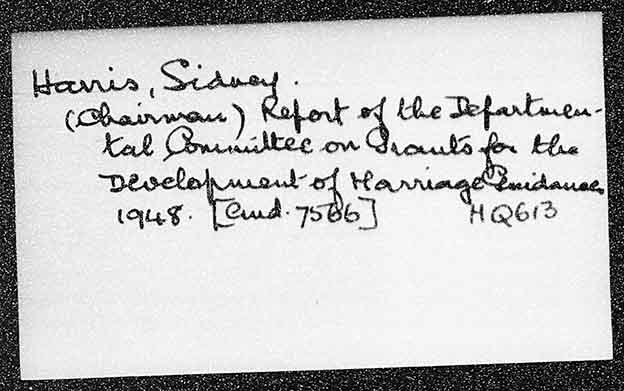 Harris, Sidney.
(Chairman) Report of the Departmen-
tal Committee on Grants for the
Development of Marriage Guidance
1948. [Cmd. 7566] HQ613